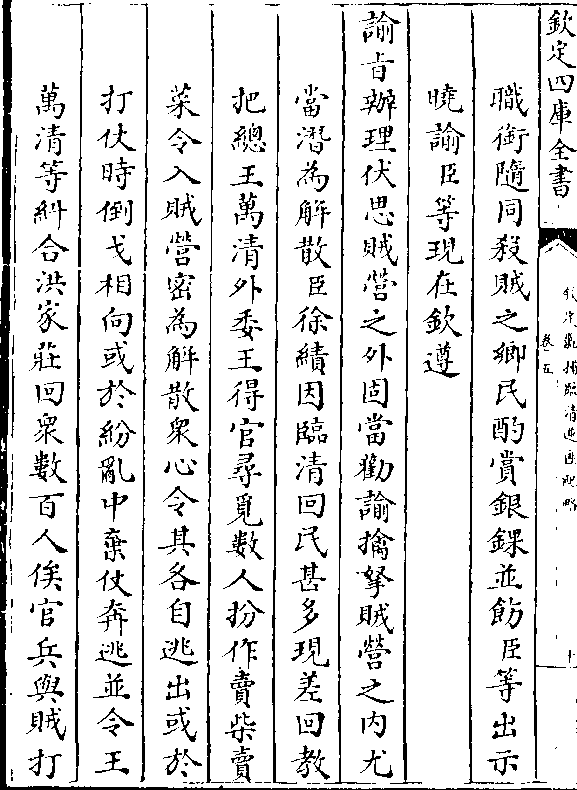 欽定四庫全書
卷五
職銜隨同殺賊之鄉民酌賞銀錁並飭臣等出示
曉諭臣等現在欽遵
諭旨辦理伏思賊營之外固當勸諭擒拏賊營之内尤
當潛為解散臣徐績因臨清回民甚多現差回教
把總王萬清外委王得官尋覓數人扮作賣柴賣
菜令入賊營密為解散衆心令其各自逃出或於
打仗時倒戈相向或於紛亂中棄仗奔逃並令王
萬清等糾合洪家莊回衆數百人俟官兵與賊打